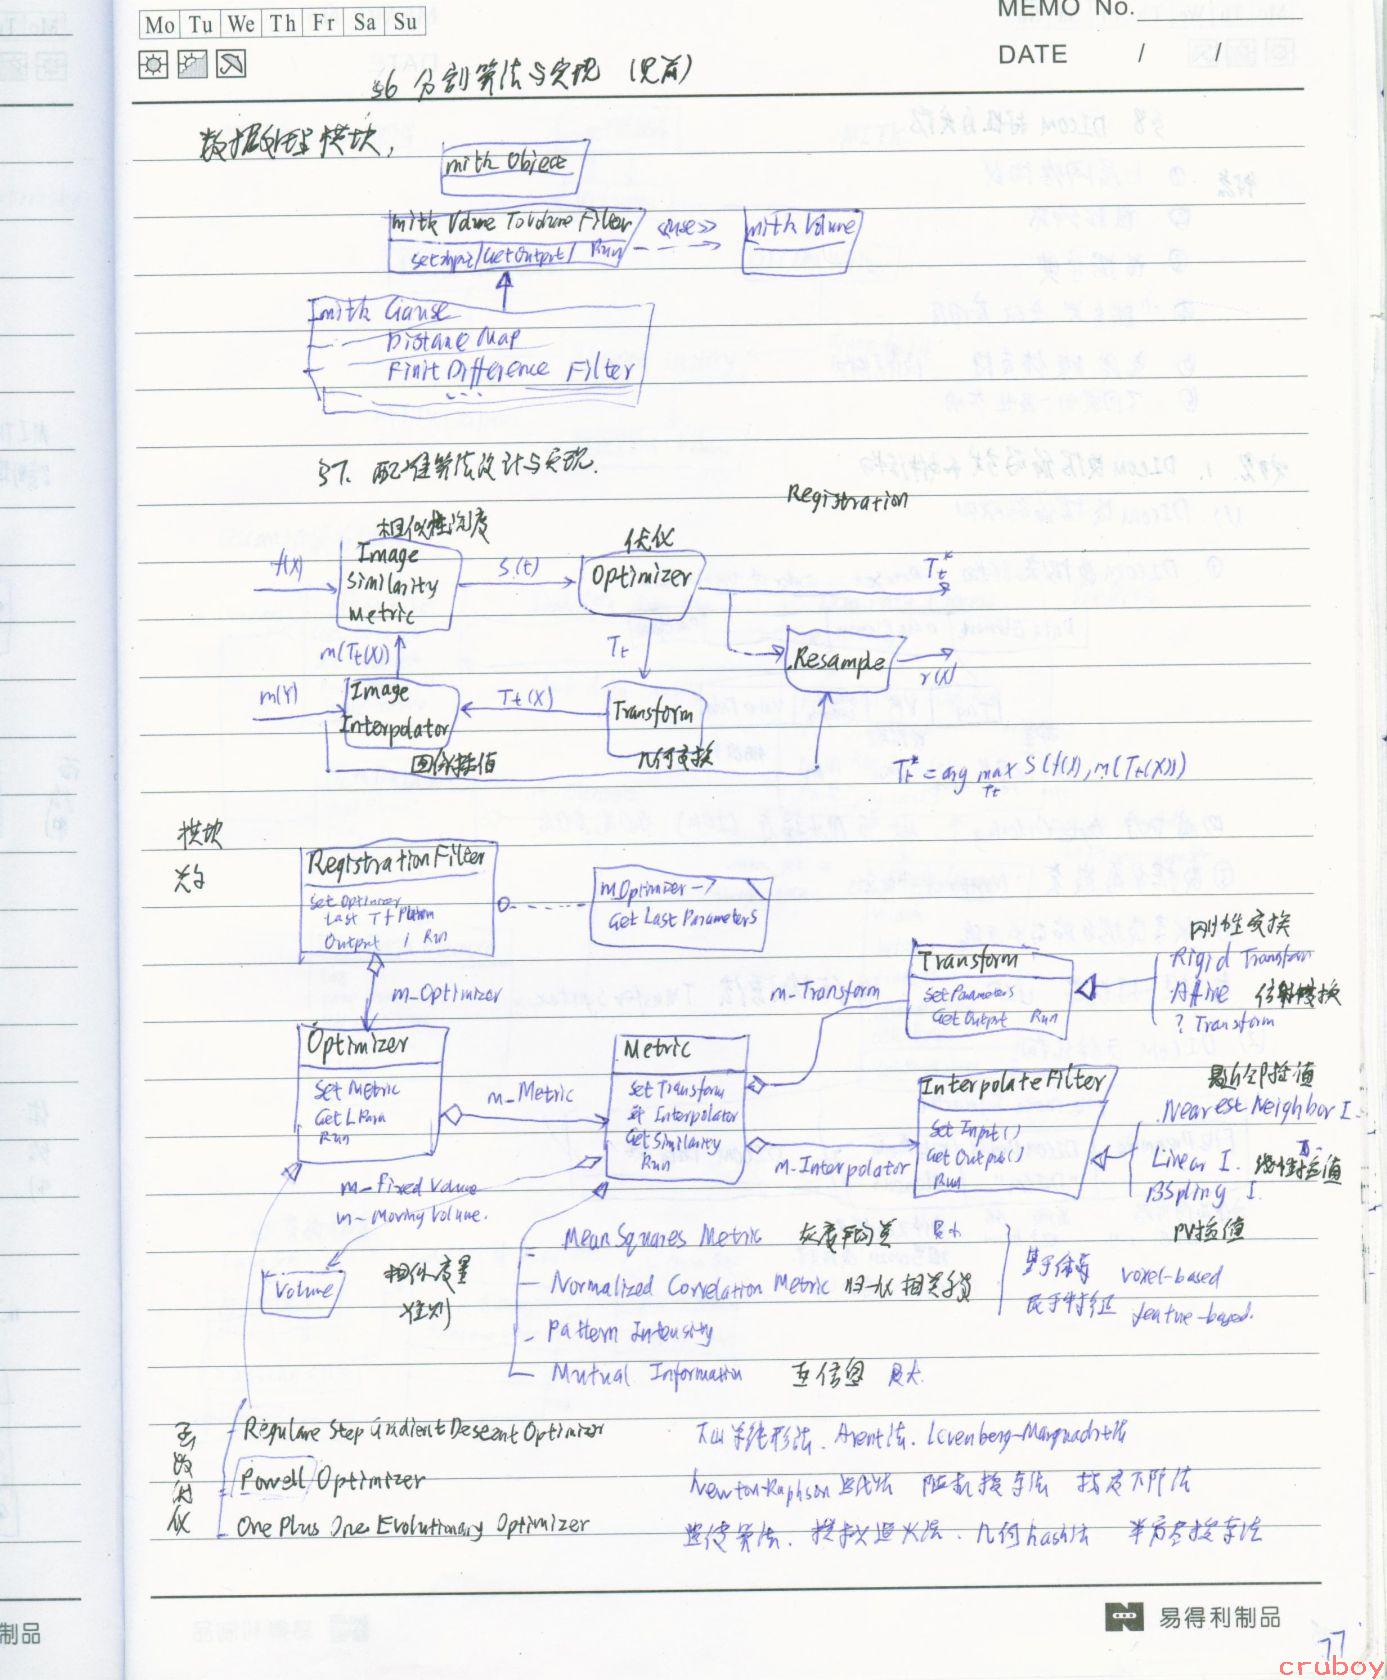 Mo Tu We Th Fr Sa Su
MEMO No.
DATE / /
§6 分割算法与实现 (见前)
数据处理模块,
mitk Object
mitk Volume ToVolume Filter
SetInput/GetOutput/ Run
<<use>>
mitk Volume
mitk Gause
Distane Map
Finit Difference Filter
...
§7. 配准算法设计与实现.
Registration
相似性测度
Image Similarity Metric
f(X)
S(t)
优化
Optimizer
Tt*
Tt
m(Tt(X))
Resample
r(X)
m(Y)
Image Interpolator
图像插值
Tt(X)
Transform
几何变换
Tt* = arg max S(f(X), m(Tt(X)))
Tt
模块
RegistrationFilter
Set Optimizer
Last Tf
Output / Run
m_Optimizer ->
Get Last Parameters
m_Optimizer
Optimizer
Set Metric
Get L Para
Run
m_Metric
Metric
Set Transform
Interpolator
Get Similarity
Run
m_Transform
Transform
Set Parameters
Get Output Run
刚性变换
Rigid Transform
Affine 仿射变换
? Transform
m_Interpolator
InterpolateFilter
Set Input()
Get Output()
Run
最近邻插值
Nearest Neighbor I.
Linear I. 线性插值
BSpling I.
PV插值
m_Fixed Volume
m_Moving Volume.
Volume
相似度量
准则
Mean Squares Metric 灰度平均差 最小
Normalized Correlation Metric 归一化相关系数
Pattern Intensity
Mutual Information 互信息 最大
基于体素 voxel-based
基于特征 feature-based.
函数优化
Regulare Step Gradient Descent Optimizer
Powell Optimizer
One Plus One Evolutionary Optimizer
下山单纯形法. Arent法. Levenberg-Marquadrt法
Newton-Raphson 迭代法 随机搜索法 梯度下降法
遗传算法. 模拟退火法. 几何hash法 半穷尽搜索法
易得利制品
制品
77
cruboy